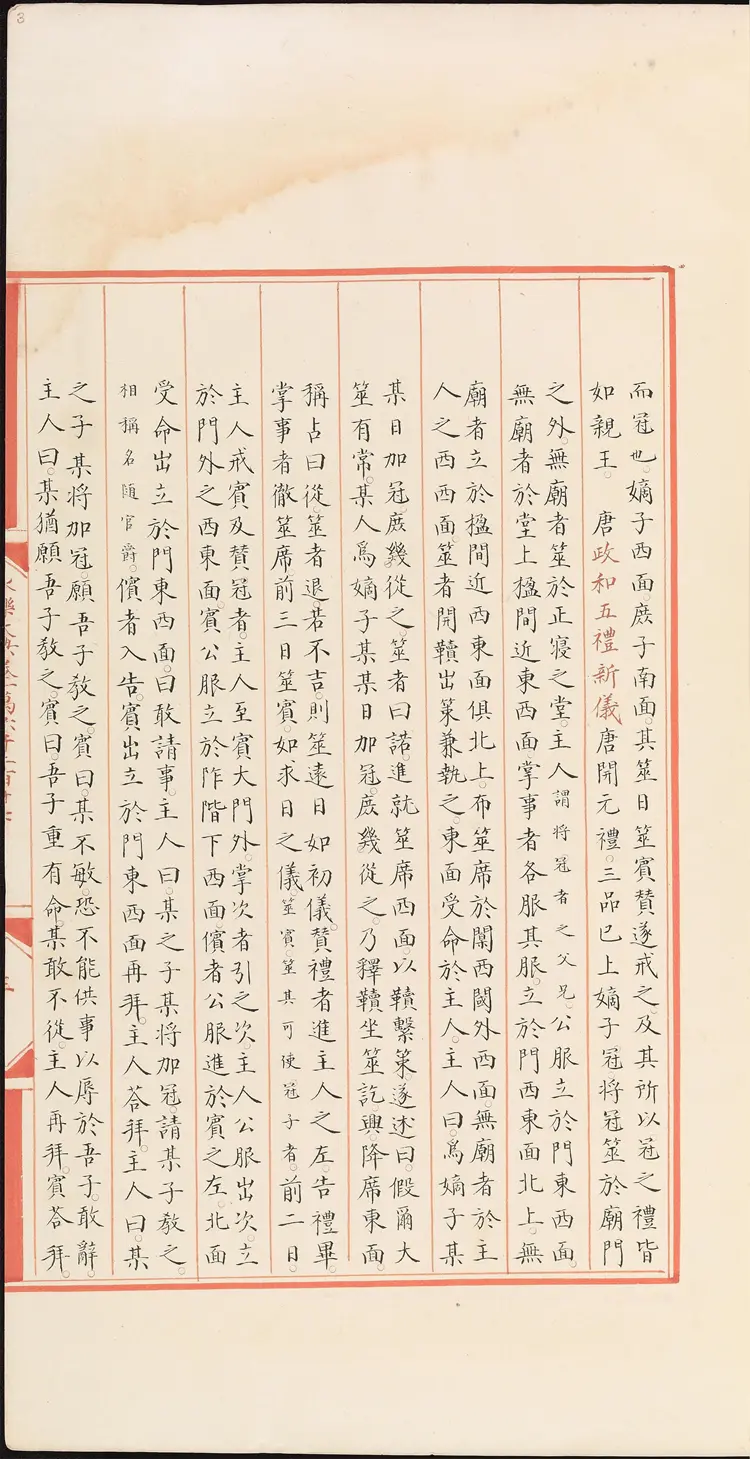 而冠也。嫡子西面。庶子南面。其筮日筮賓贊遂戒之。及其所以冠之禮皆
如親王。　唐政和五禮新儀唐開元禮。三品已上嫡子冠。將冠筮於廟門
之外。無廟者筮於正寢之堂。主人謂將冠者之父兄。公服立於門東西面。
無廟者於堂上楹間近東西面。掌事者各服其服。立於門西東面北上。無
廟者立於楹間近西東面俱北上。布筮席於闑西閾外西面。無廟者於主
人之西西面。筮者開韇出筴兼執之。東面受命於主人。主人曰。爲嫡子某
某日加冠。庶幾從之。筮者曰諾。進就筮席西面。以韇擊筴。遂述曰。假爾大
筮有常。某人爲嫡子某某日加冠。庶幾從之。乃釋韇坐筮。訖興。降席東面
稱占曰從。筮者退。若不吉。則筮遠日如初儀。贊禮者進主人之左。告禮畢。
掌事者徹筮席。前三日筮賓。如求日之儀。筮賓。筮其可使冠子者。前二日。
主人戒賓及贊冠者。主人至賓大門外。掌次者引之次。主人公服出次。立
於門外之西東面。賓公服立於阼階下西面。儐者公服進於賓之左。北面
受命出立於門東西面。曰敢請事。主人曰。某之子某將加冠。請某子教之。
相稱名隨官爵。儐者入告。賓出立於門東西面再拜。主人荅拜。主人曰。某
之子某將加冠。願吾子教之。賓曰。某不敏。恐不能供事以辱於吾子。敢辭。
主人曰。某猶願吾子教之。賓曰。吾子重有命。某敢不從。主人再拜。賓荅拜。
三
3